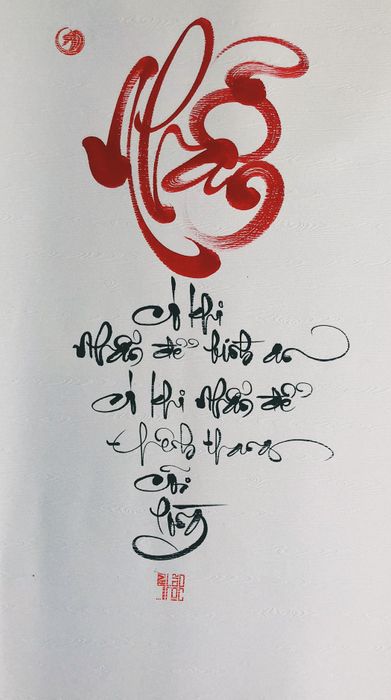 Nhẫn
Có khi
Nhẫn để bình an
Có khi nhẫn để
thênh thang
cõi
lòng